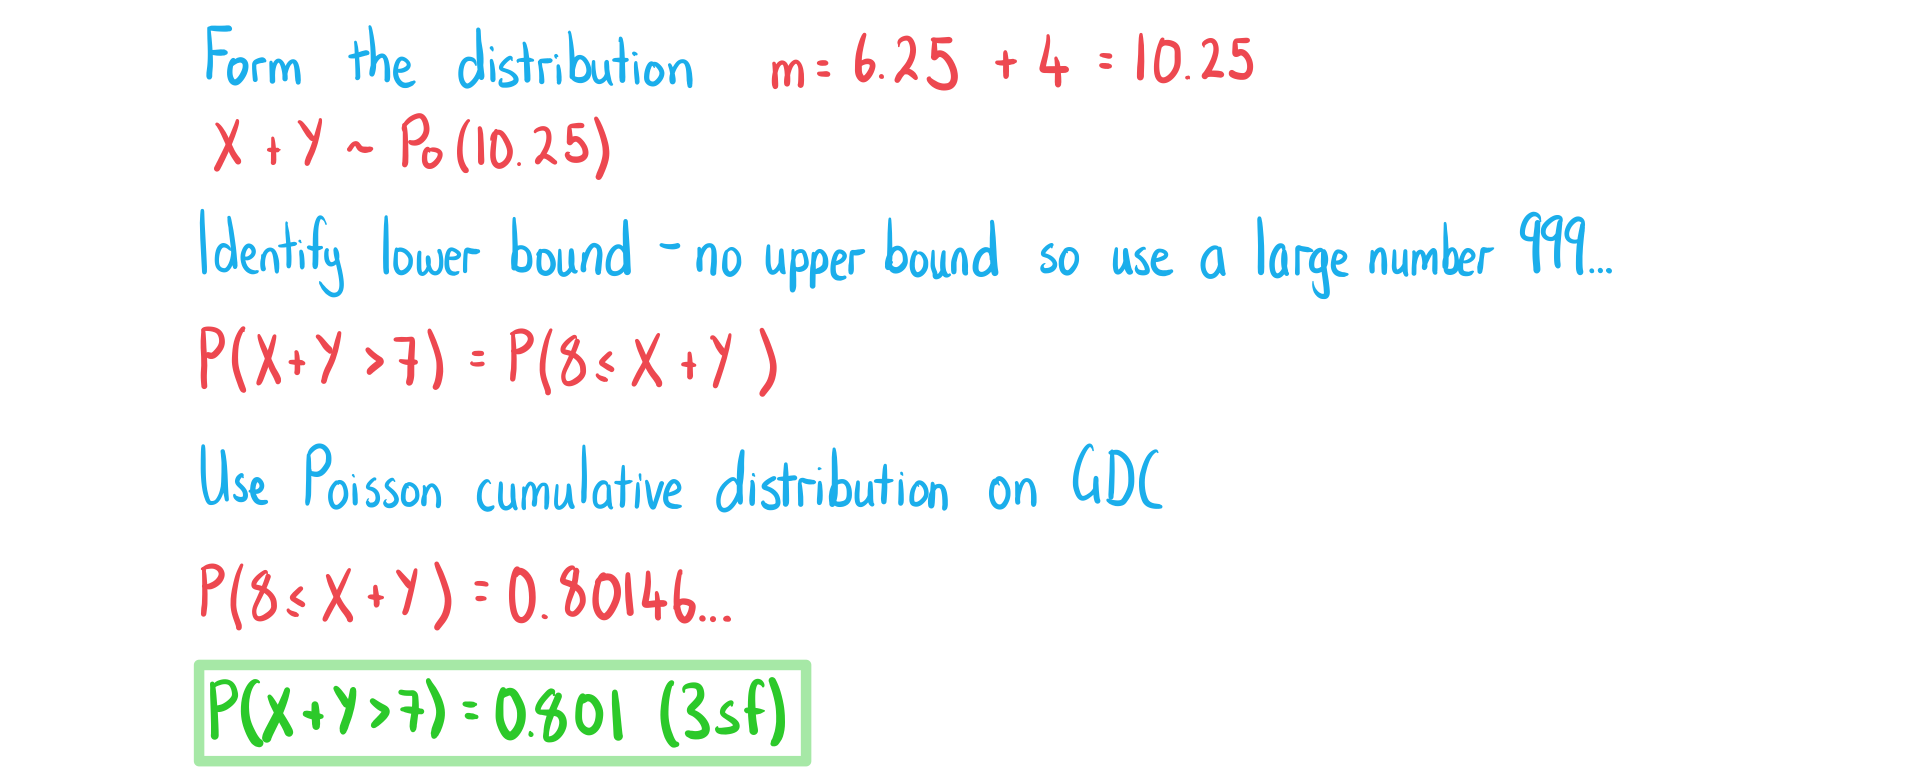 Form the distribution m = 6.25 + 4 = 10.25
X + Y ~ Po(10.25)
Identify lower bound - no upper bound so use a large number 999...
P(X+Y > 7) = P(8 ≤ X + Y )
Use Poisson cumulative distribution on GDC
P(8 ≤ X + Y ) = 0.80146...
P(X+Y > 7) = 0.801 (3sf)